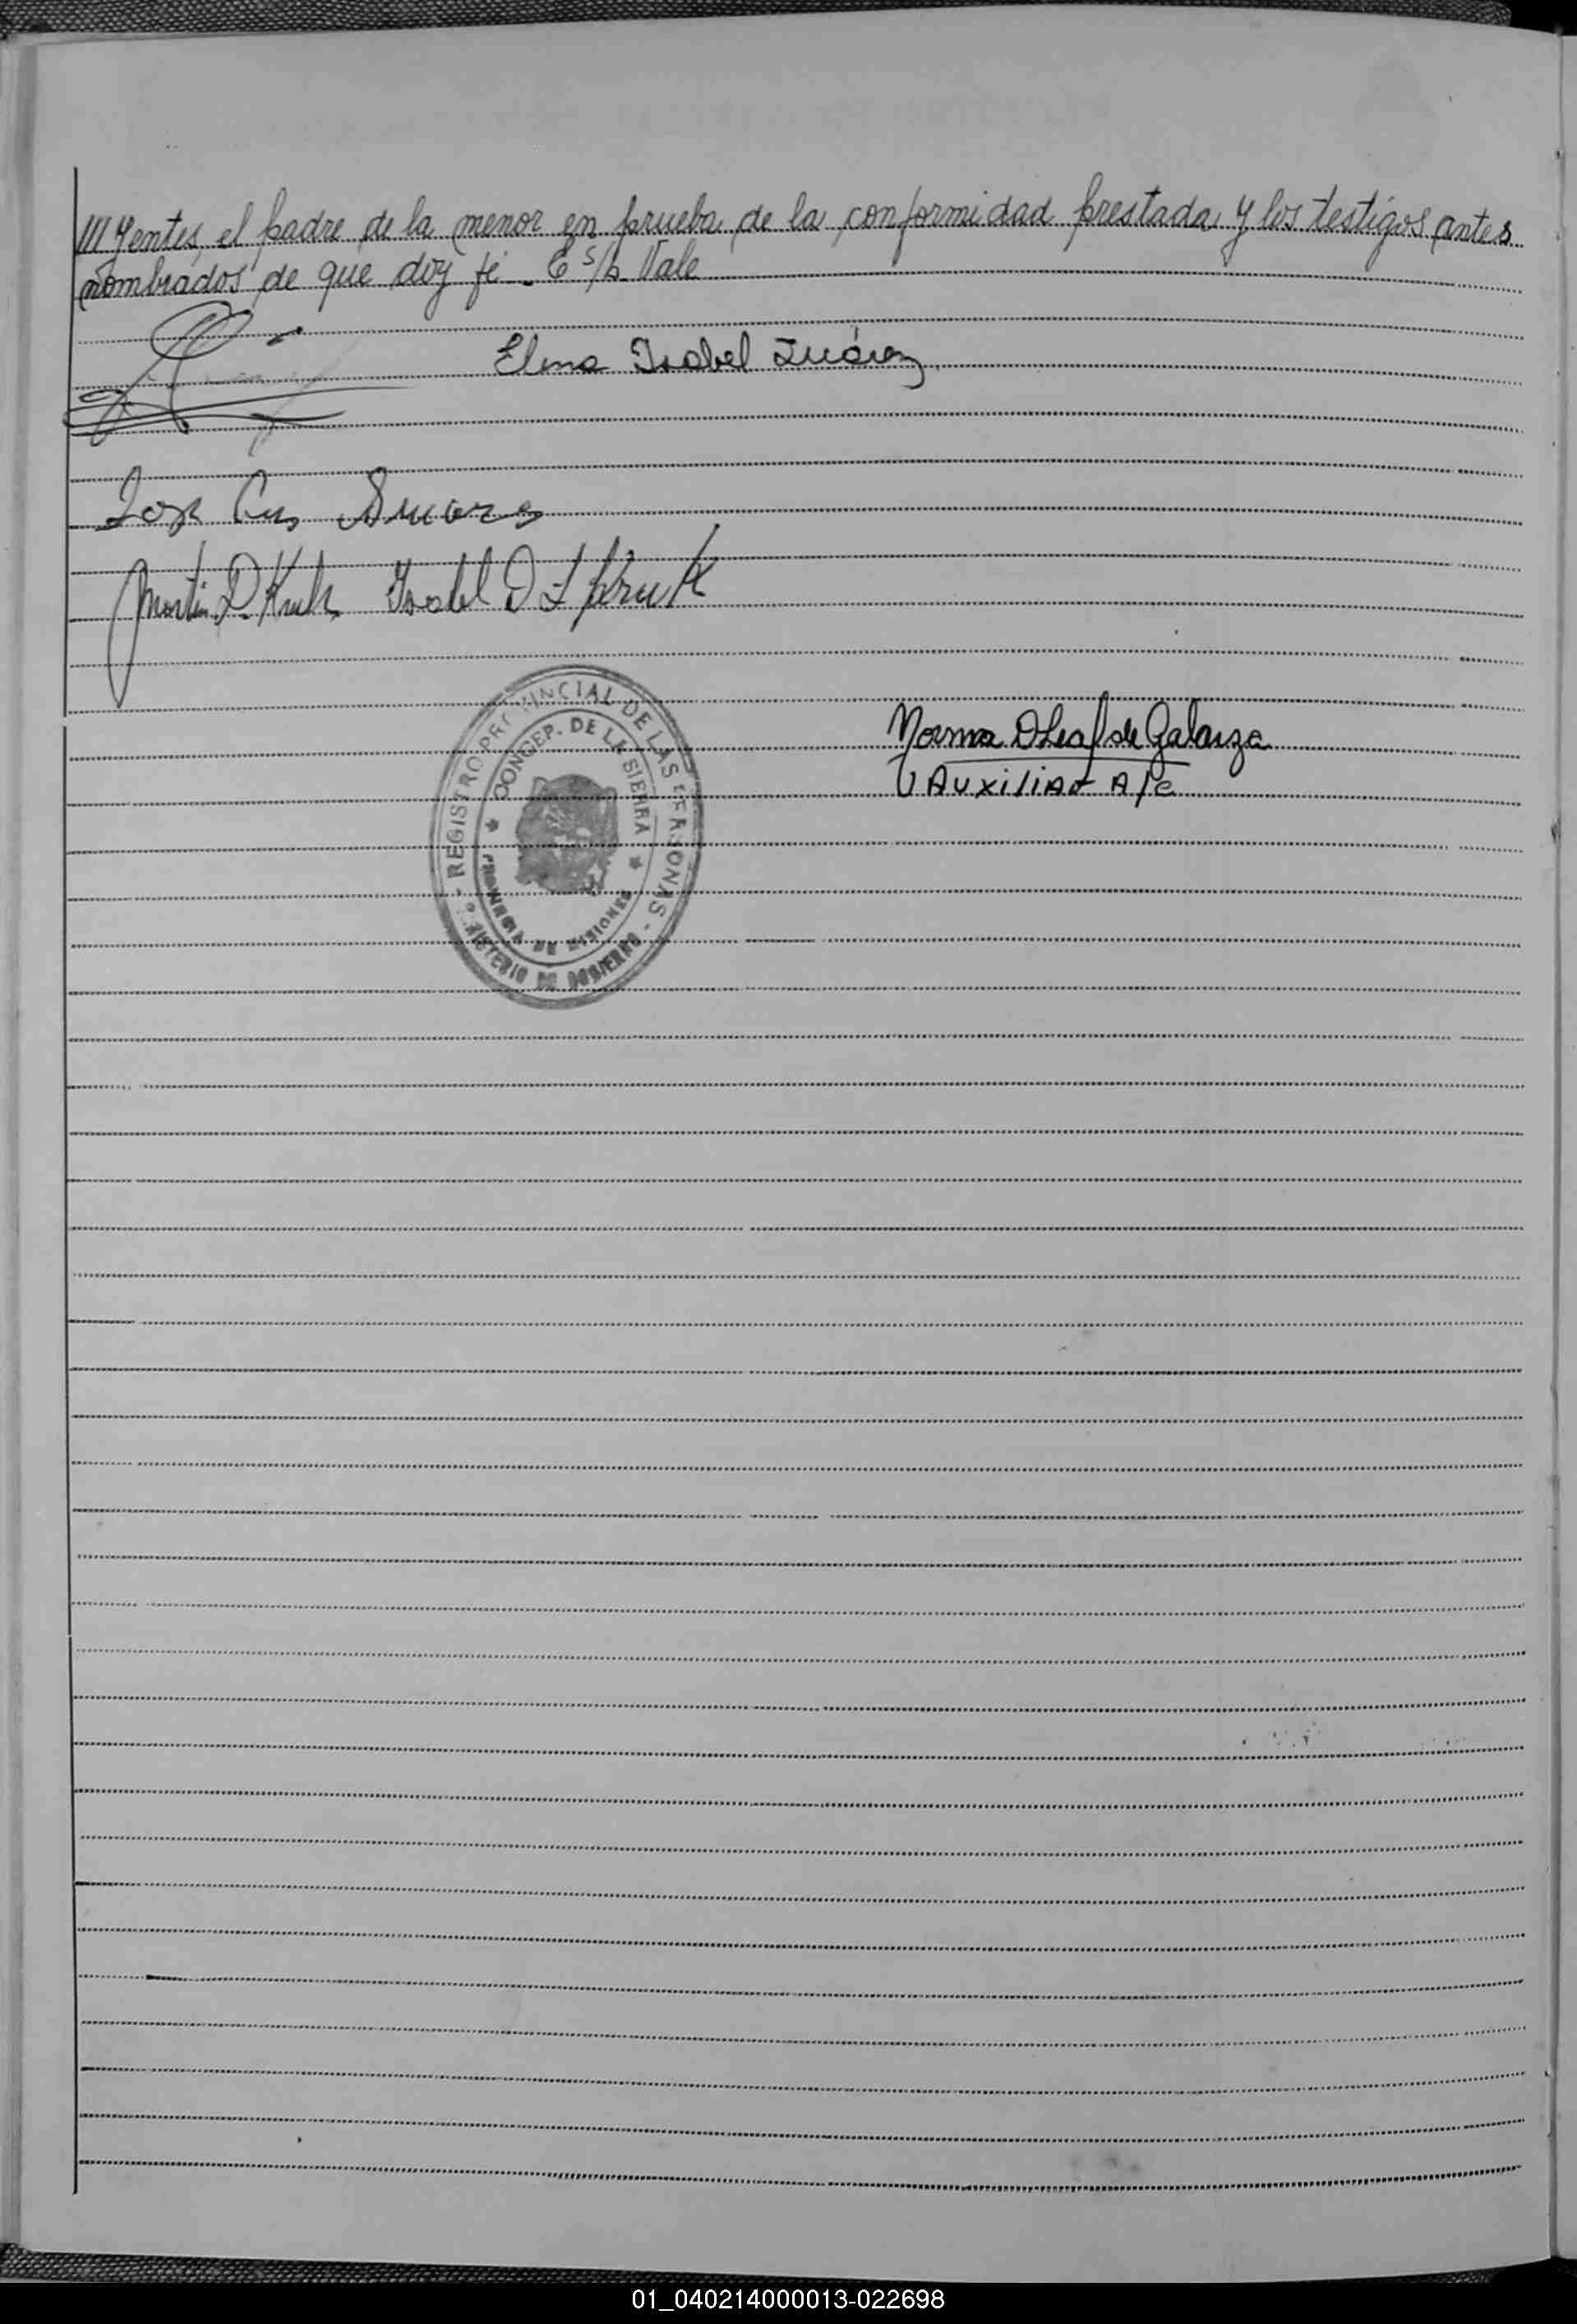 ///yentes, el padre de la menor en prueba de la conformidad prestada y los testigos antes
nombrados de que doy fé. E s/b Vale
Elena Isabel Suárez
Martin
Isabel D
REGISTRO PROVINCIAL DE LAS PERSONAS
CONCEP. DE LA SIERRA
PROVINCIA DE MISIONES
MINISTERIO DE GOBIERNO
Norma D Leal de Galarza
Auxiliar A/c
01_040214000013-022698